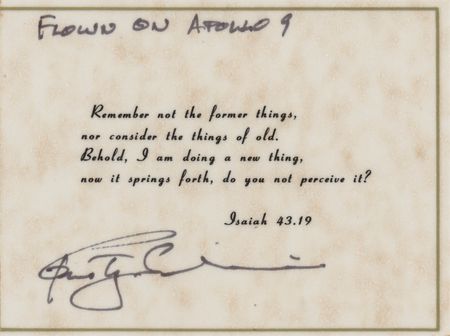 FLOWN ON APOLLO 9
Remember not the former things,
nor consider the things of old.
Behold, I am doing a new thing,
now it springs forth, do you not perceive it?
Isaiah 43.19